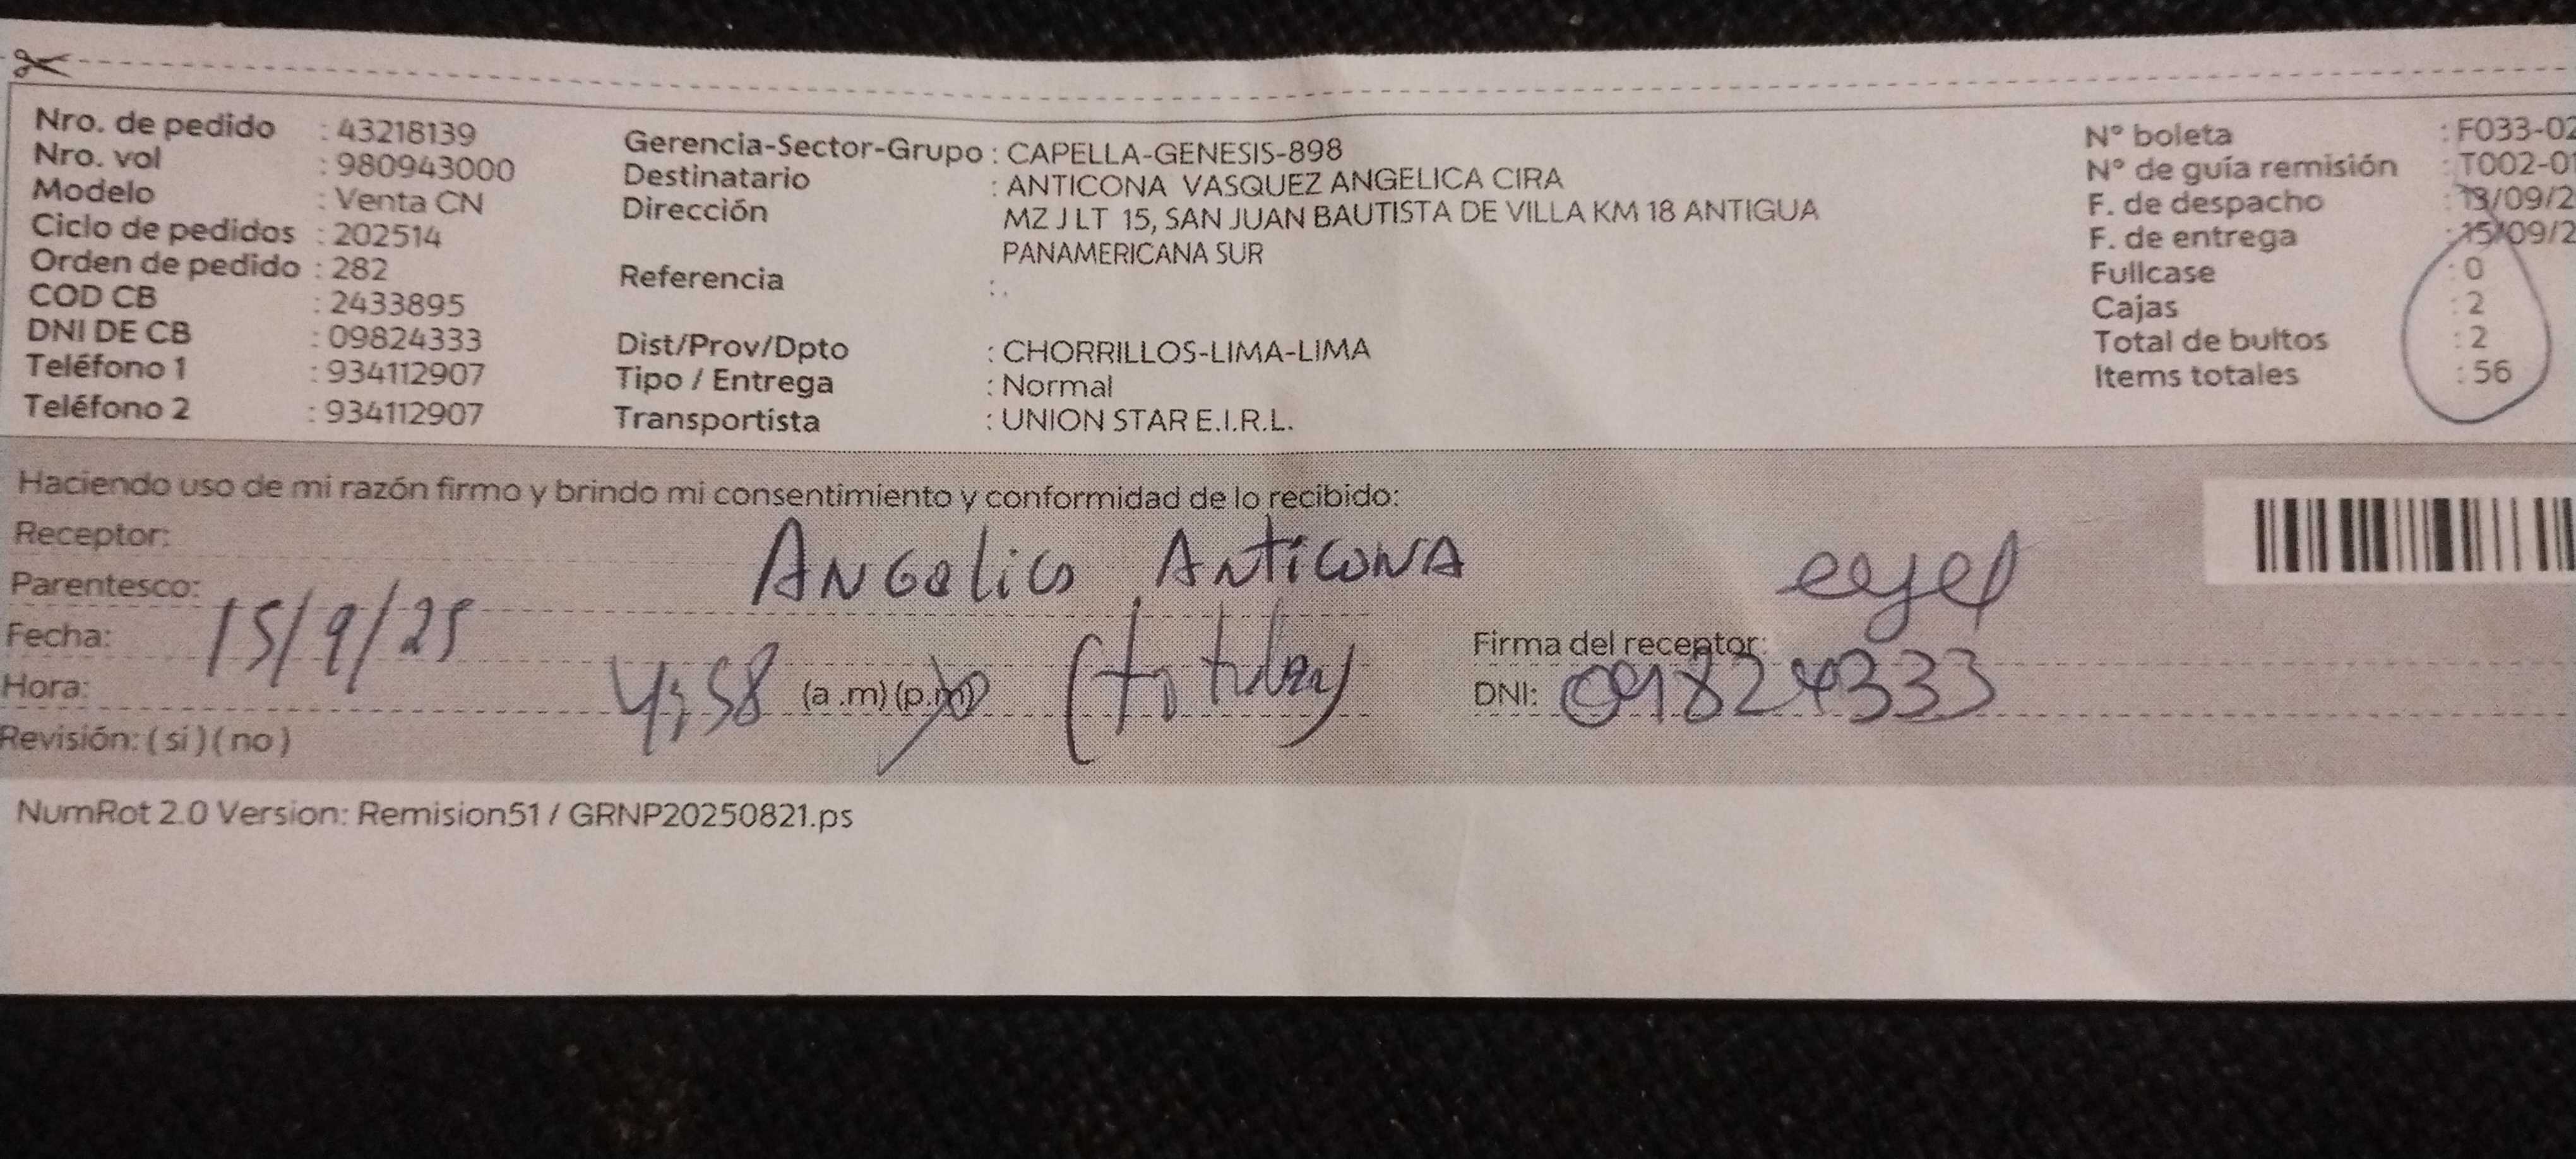 Nro. de pedido : 43218139
Nro. vol : 980943000
Modelo : Venta CN
Ciclo de pedidos : 202514
Orden de pedido : 282
COD CB : 2433895
DNI DE CB : 09824333
Teléfono 1 : 934112907
Teléfono 2 : 934112907
Gerencia-Sector-Grupo : CAPELLA-GENESIS-898
Destinatario : ANTICONA VASQUEZ ANGELICA CIRA
Dirección MZ J LT 15, SAN JUAN BAUTISTA DE VILLA KM 18 ANTIGUA
PANAMERICANA SUR
Referencia : .
Dist/Prov/Dpto : CHORRILLOS-LIMA-LIMA
Tipo / Entrega : Normal
Transportista : UNION STAR E.I.R.L.
N° boleta : F033-02
N° de guía remisión : T002-01
F. de despacho : 13/09/2
F. de entrega : 15/09/2
Fullcase : 0
Cajas : 2
Total de bultos : 2
Items totales : 56
Haciendo uso de mi razón firmo y brindo mi consentimiento y conformidad de lo recibido:
Receptor: Angelica Anticona
Parentesco:
Fecha: 15/9/25
Firma del receptor:
Hora: 4:58 (a .m) (p.m) (titular)
DNI: 09824333
Revisión: ( si ) ( no )
NumRot 2.0 Version: Remision51 / GRNP20250821.ps